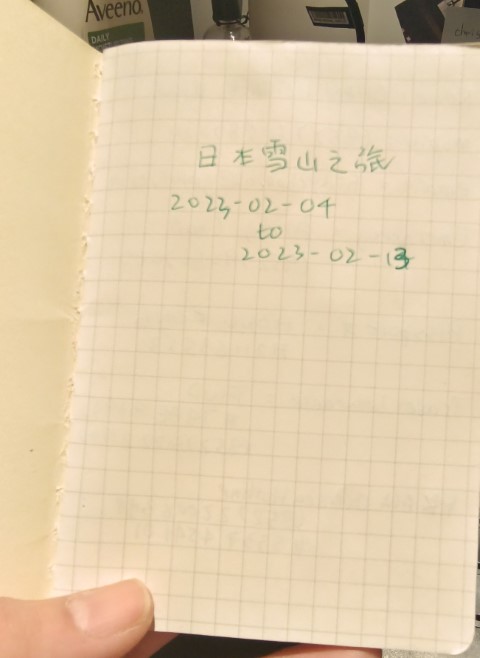 Aveeno
DAILY
日本雪山之旅
2023-02-04
to
2023-02-13